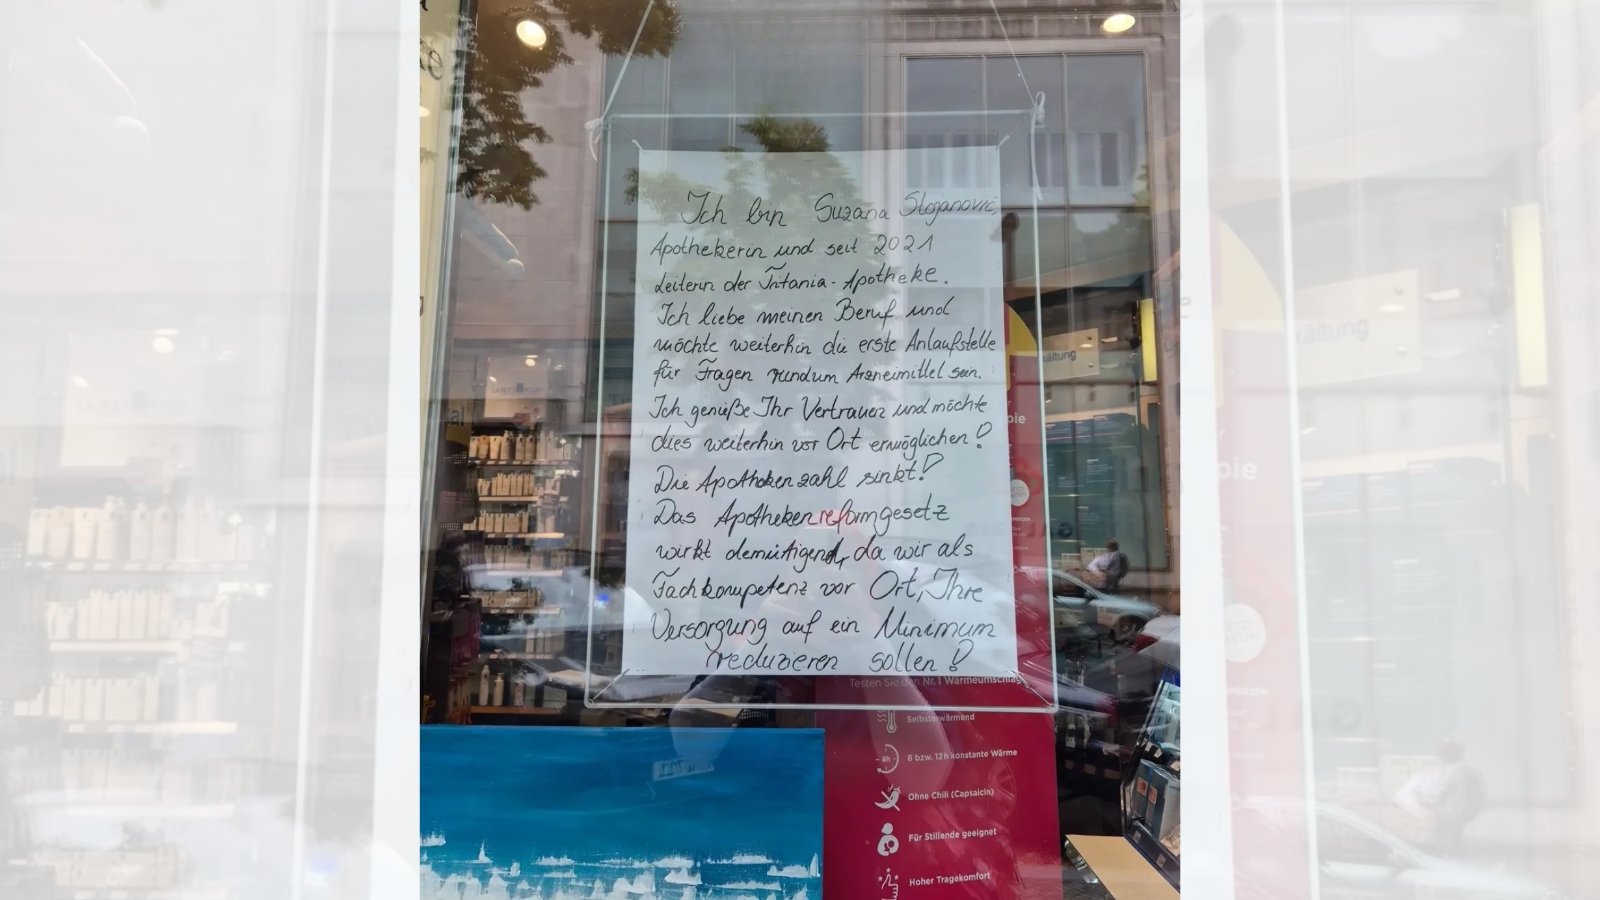 Ich bin Suzana Stojanović,
Apothekerin und seit 2021
Leiterin der Tritania-Apotheke.
Ich liebe meinen Beruf und
möchte weiterhin die erste Anlaufstelle
für Fragen rundum Arzneimittel sein.
Ich genieße Ihr Vertrauen und möchte
dies weiterhin vor Ort ermöglichen!
Die Apothekenzahl sinkt!
Das Apothekenreformgesetz
wirkt demütigend, da wir als
Fachkompetenz vor Ort, Ihre
Versorgung auf ein Minimum
reduzieren sollen!
Testen Sie den Nr.1 Wärmeumschlag
Selbsterwärmend
8h
8 bzw. 12h konstante Wärme
Ohne Chili (Capsaicin)
Für Stillende geeignet
Hoher Tragekomfort
ältung
pie